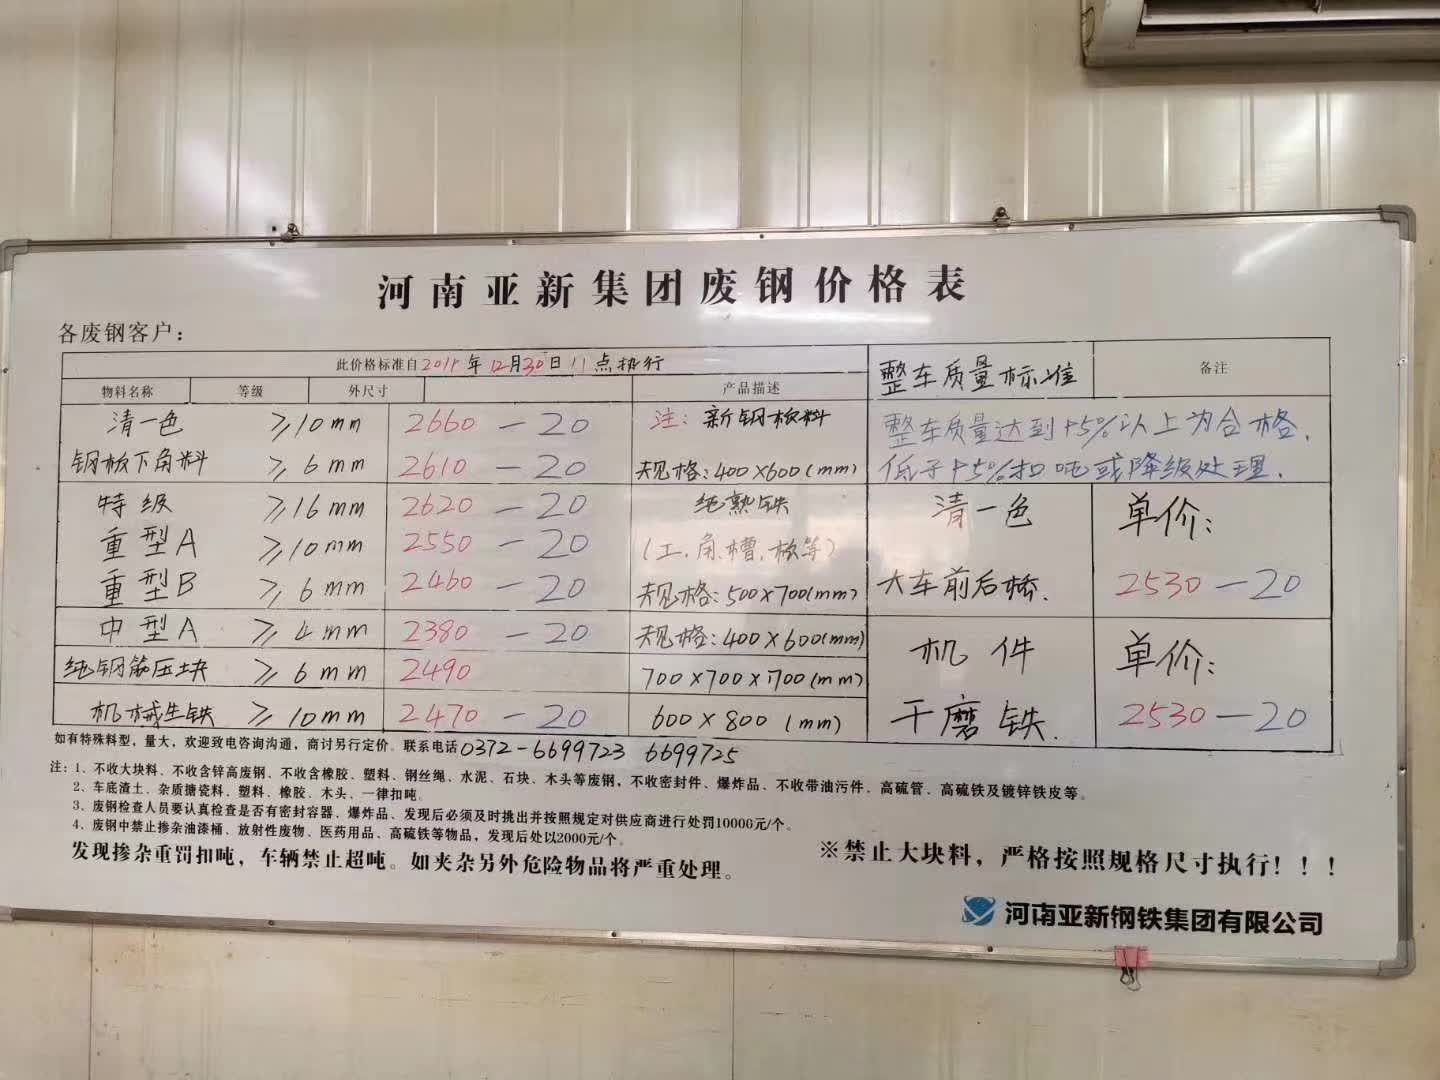 河南亚新集团废钢价格表
各废钢客户：
此价格标准自2019年12月30日11点执行
整车质量标准 备注
物料名称 等级 外尺寸 产品描述
清一色 ≥10mm 2660-20 注：新钢板料
整车质量达到+5%以上为合格.
钢板下角料 ≥6mm 2610-20 规格：400×600(mm)
低于+5%扣吨或降级处理.
特级 ≥16mm 2620-20 纯熟铁
清一色 单价：
重型A ≥10mm 2550-20 (工.角.槽.板等)
重型B ≥6mm 2460-20 规格：500×700(mm)
大车前后桥. 2530-20
中型A ≥4mm 2380-20 规格：400×600(mm)
机件 单价：
纯钢筋压块 ≥6mm 2490 700×700×700(mm)
机械生铁 ≥10mm 2470-20 600×800(mm)
干磨铁. 2530-20
如有特殊料型，量大，欢迎致电咨询沟通，商讨另行定价。联系电话0372-6699723 6699725
注：1、不收大块料、不收含锌高废钢、不收含橡胶、塑料、钢丝绳、水泥、石块、木头等废钢，不收密封件、爆炸品、不收带油污件、高硫管、高硫铁及镀锌铁皮等。
2、车底渣土、杂质搪瓷料、塑料、橡胶、木头、一律扣吨。
3、废钢检查人员要认真检查是否有密封容器、爆炸品、发现后必须及时挑出并按照规定对供应商进行处罚10000元/个。
4、废钢中禁止掺杂油漆桶、放射性废物、医药用品、高硫铁等物品，发现后处以2000元/个。
发现掺杂重罚扣吨，车辆禁止超吨。如夹杂另外危险物品将严重处理。
※禁止大块料，严格按照规格尺寸执行！！！
河南亚新钢铁集团有限公司